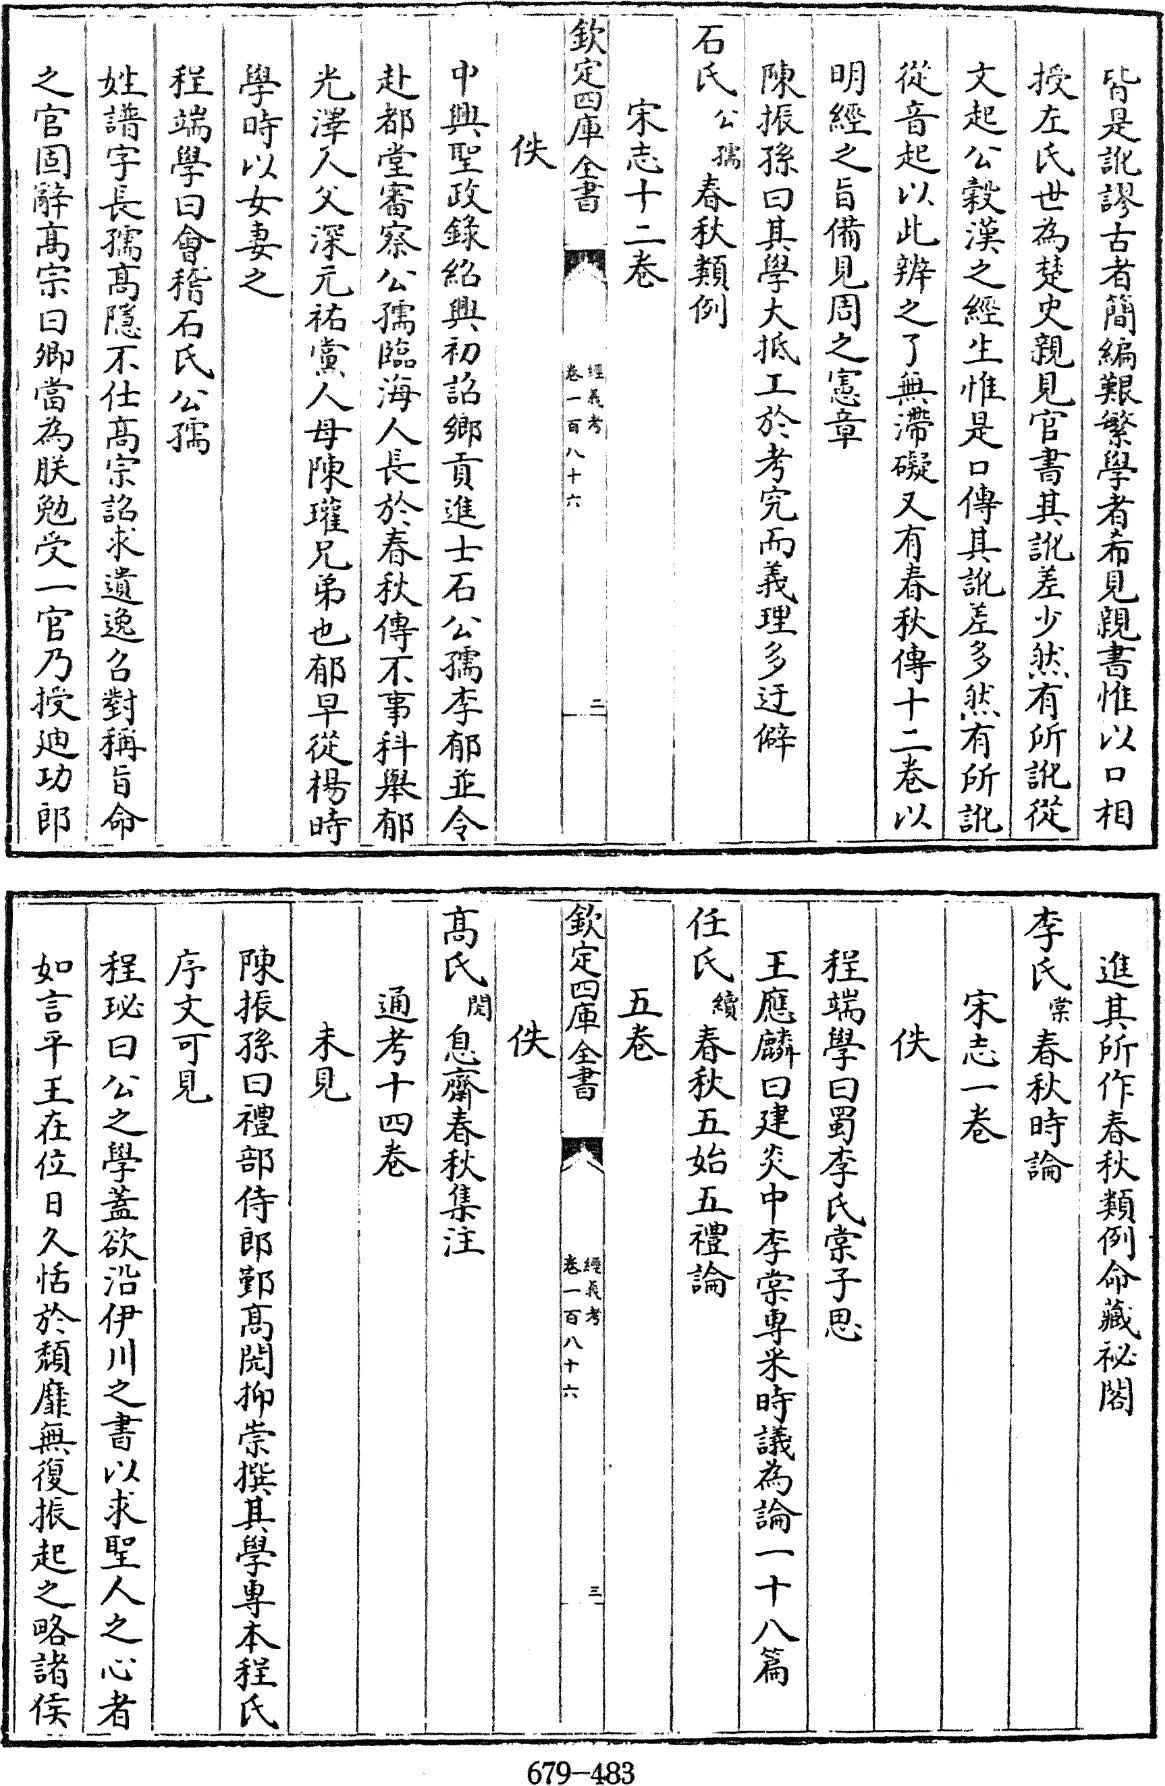 皆是訛謬古者簡編艱繁學者希見親書惟以口相
授左氏世為楚史親見官書其訛差少然有所訛從
文起公穀漢之經生惟是口傳其訛差多然有所訛
從音起以此辨之了無滯礙又有春秋傳十二卷以
明經之旨備見周之憲章
陳振孫曰其學大抵工於考究而義理多迂僻
石氏公孺春秋類例
宋志十二卷
欽定四庫全書 經義考 卷一百八十六 二
佚
中興聖政錄紹興初詔鄉貢進士石公孺李郁並令
赴都堂審察公孺臨海人長於春秋傳不事科舉郁
光澤人父深元祐黨人母陳瓘兄弟也郁早從楊時
學時以女妻之
程端學曰會稽石氏公孺
姓譜字長孺高隱不仕高宗詔求遺逸召對稱旨命
之官固辭高宗曰卿當為朕勉受一官乃授廸功郎
進其所作春秋類例命藏祕閣
李氏棠春秋時論
宋志一卷
佚
程端學曰蜀李氏棠子思
王應麟曰建炎中李棠專采時議為論一十八篇
任氏續春秋五始五禮論
五卷
欽定四庫全書 經義考 卷一百八十六 三
佚
高氏閌息齋春秋集注
通考十四卷
未見
陳振孫曰禮部侍郎鄞高閌抑崇撰其學專本程氏
序文可見
程珌曰公之學蓋欲沿伊川之書以求聖人之心者
如言平王在位日久恬於頹靡無復振起之略諸侯
679-483